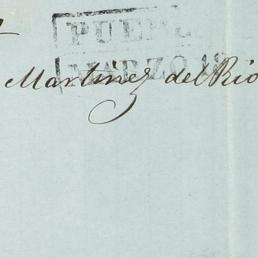 PUEBL
MARZO 18
Martinez del Rio